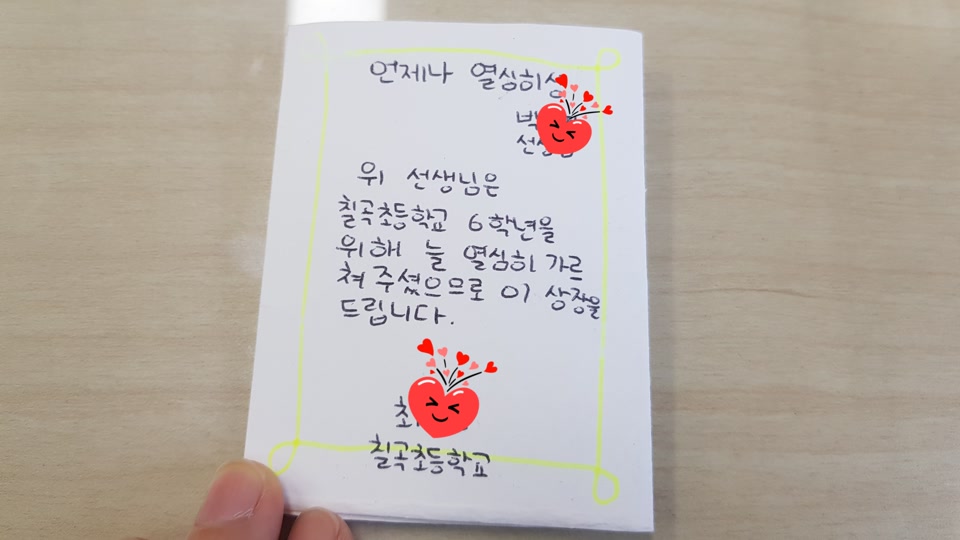 언제나 열심히상
위 선생님은
칠곡초등학교 6학년을
위해 늘 열심히 가르
쳐 주셨으므로 이 상장을
드립니다.
칠곡초등학교